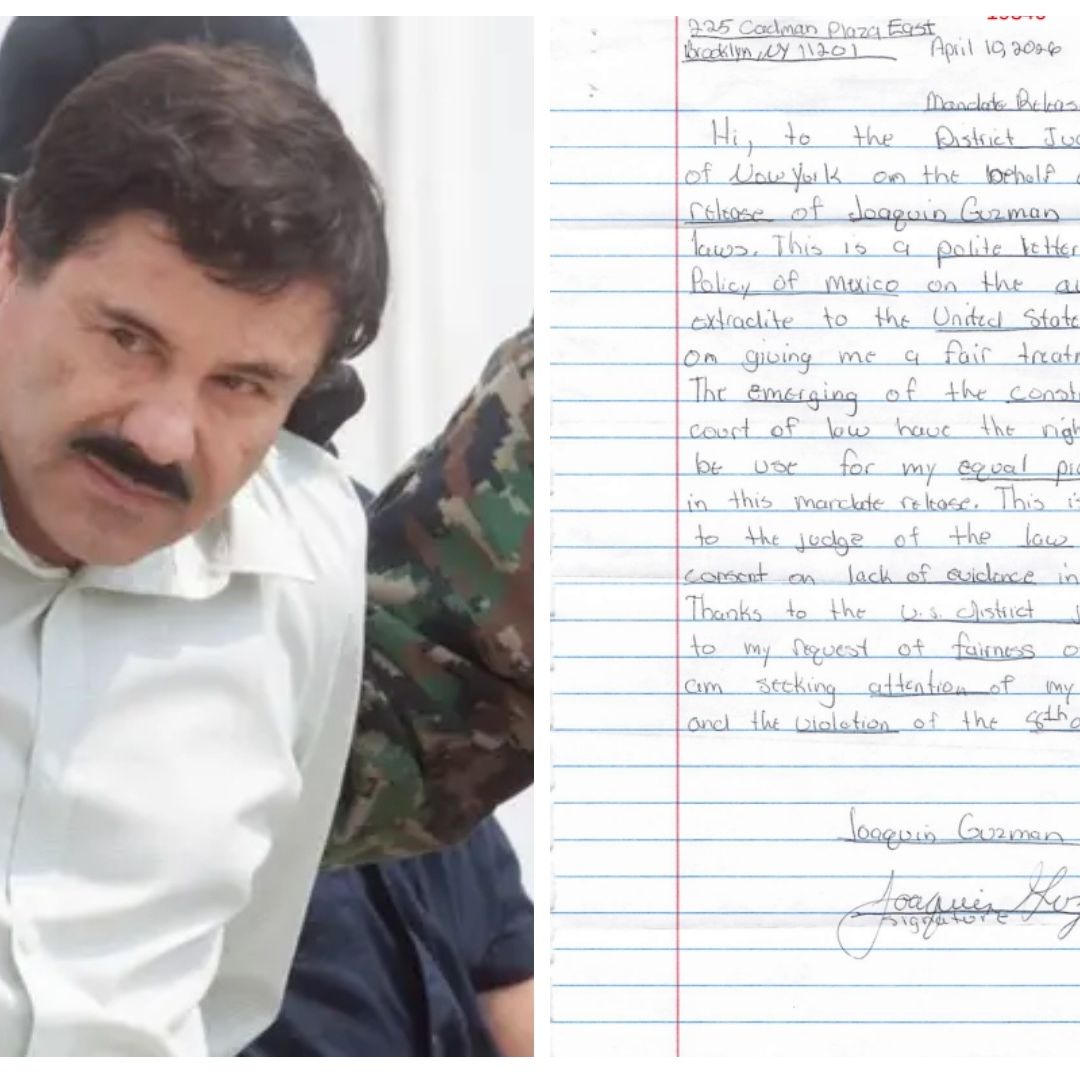 225 Cadman Plaza East
Brooklyn, NY 11201 April 10, 2026
Mandate
Hi, to the District
of New York on the behalf
release of Joaquin Guzman
laws. This is a polite letter
Policy of Mexico on the
extradite to the United State
on giving me a fair
The emerging of the
court of law have the
be use for my equal
in this mandate release. This
to the judge of the law
consent on lack of evidence in
Thanks to the U.S. District
to my request of fairness
am seeking attention of my
and the violation of the 8th
Joaquin Guzman
Joaquin
signature